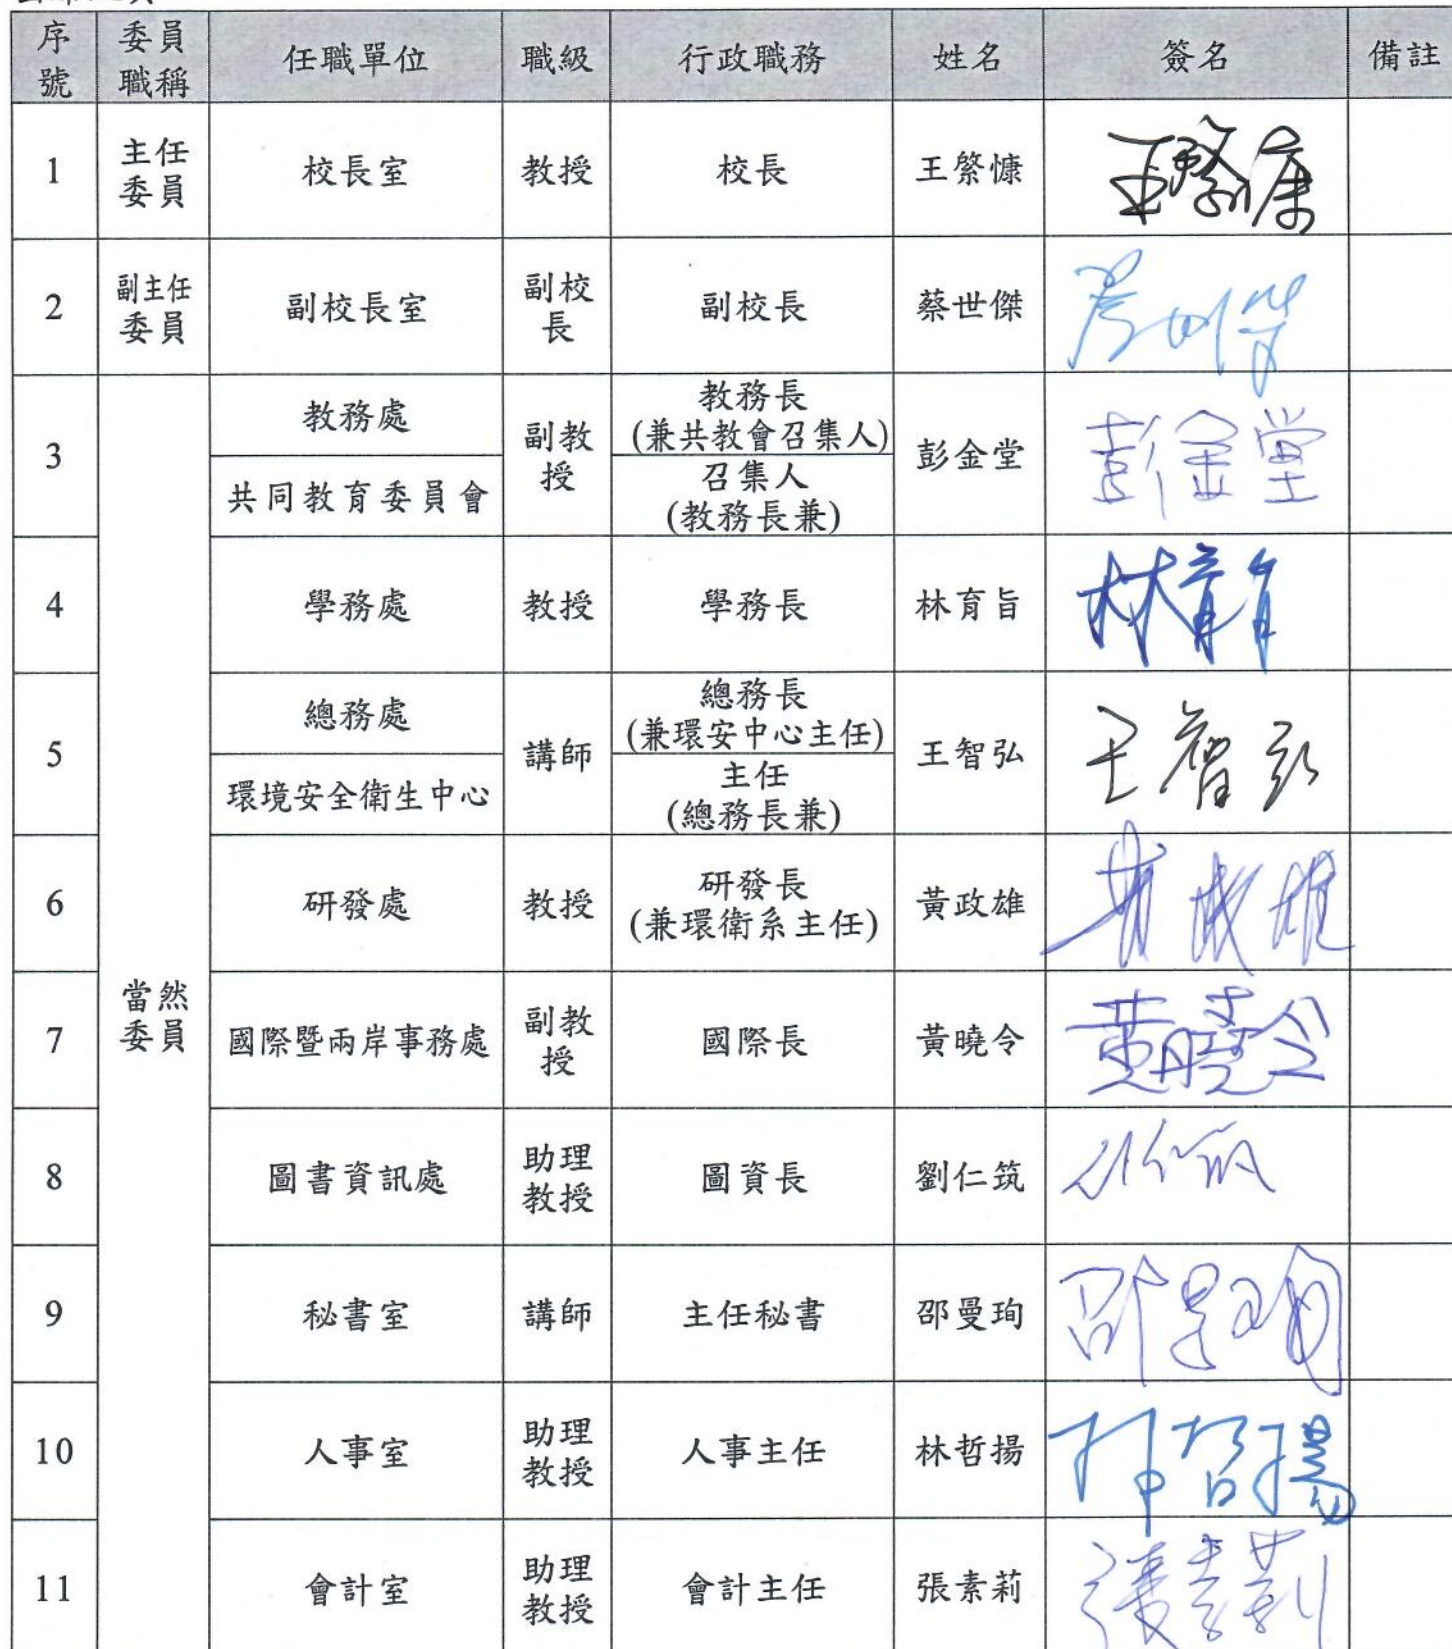 序號 委員職稱 任職單位 職級 行政職務 姓名 簽名 備註
1 主任委員 校長室 教授 校長 王繁慷 王繁慷
2 副主任委員 副校長室 副校長 副校長 蔡世傑
3 教務處 副教授 教務長(兼共教會召集人) 彭金堂 彭金堂
共同教育委員會 召集人(教務長兼)
4 學務處 教授 學務長 林育旨 林育旨
5 總務處 講師 總務長(兼環安中心主任) 王智弘 王智弘
環境安全衛生中心 主任(總務長兼)
6 研發處 教授 研發長(兼環衛系主任) 黃政雄 黃政雄
當然委員
7 國際暨兩岸事務處 副教授 國際長 黃曉令 黃曉令
8 圖書資訊處 助理教授 圖資長 劉仁筑
9 秘書室 講師 主任秘書 邵曼珣 邵曼珣
10 人事室 助理教授 人事主任 林哲揚 林哲揚
11 會計室 助理教授 會計主任 張素莉 張素莉